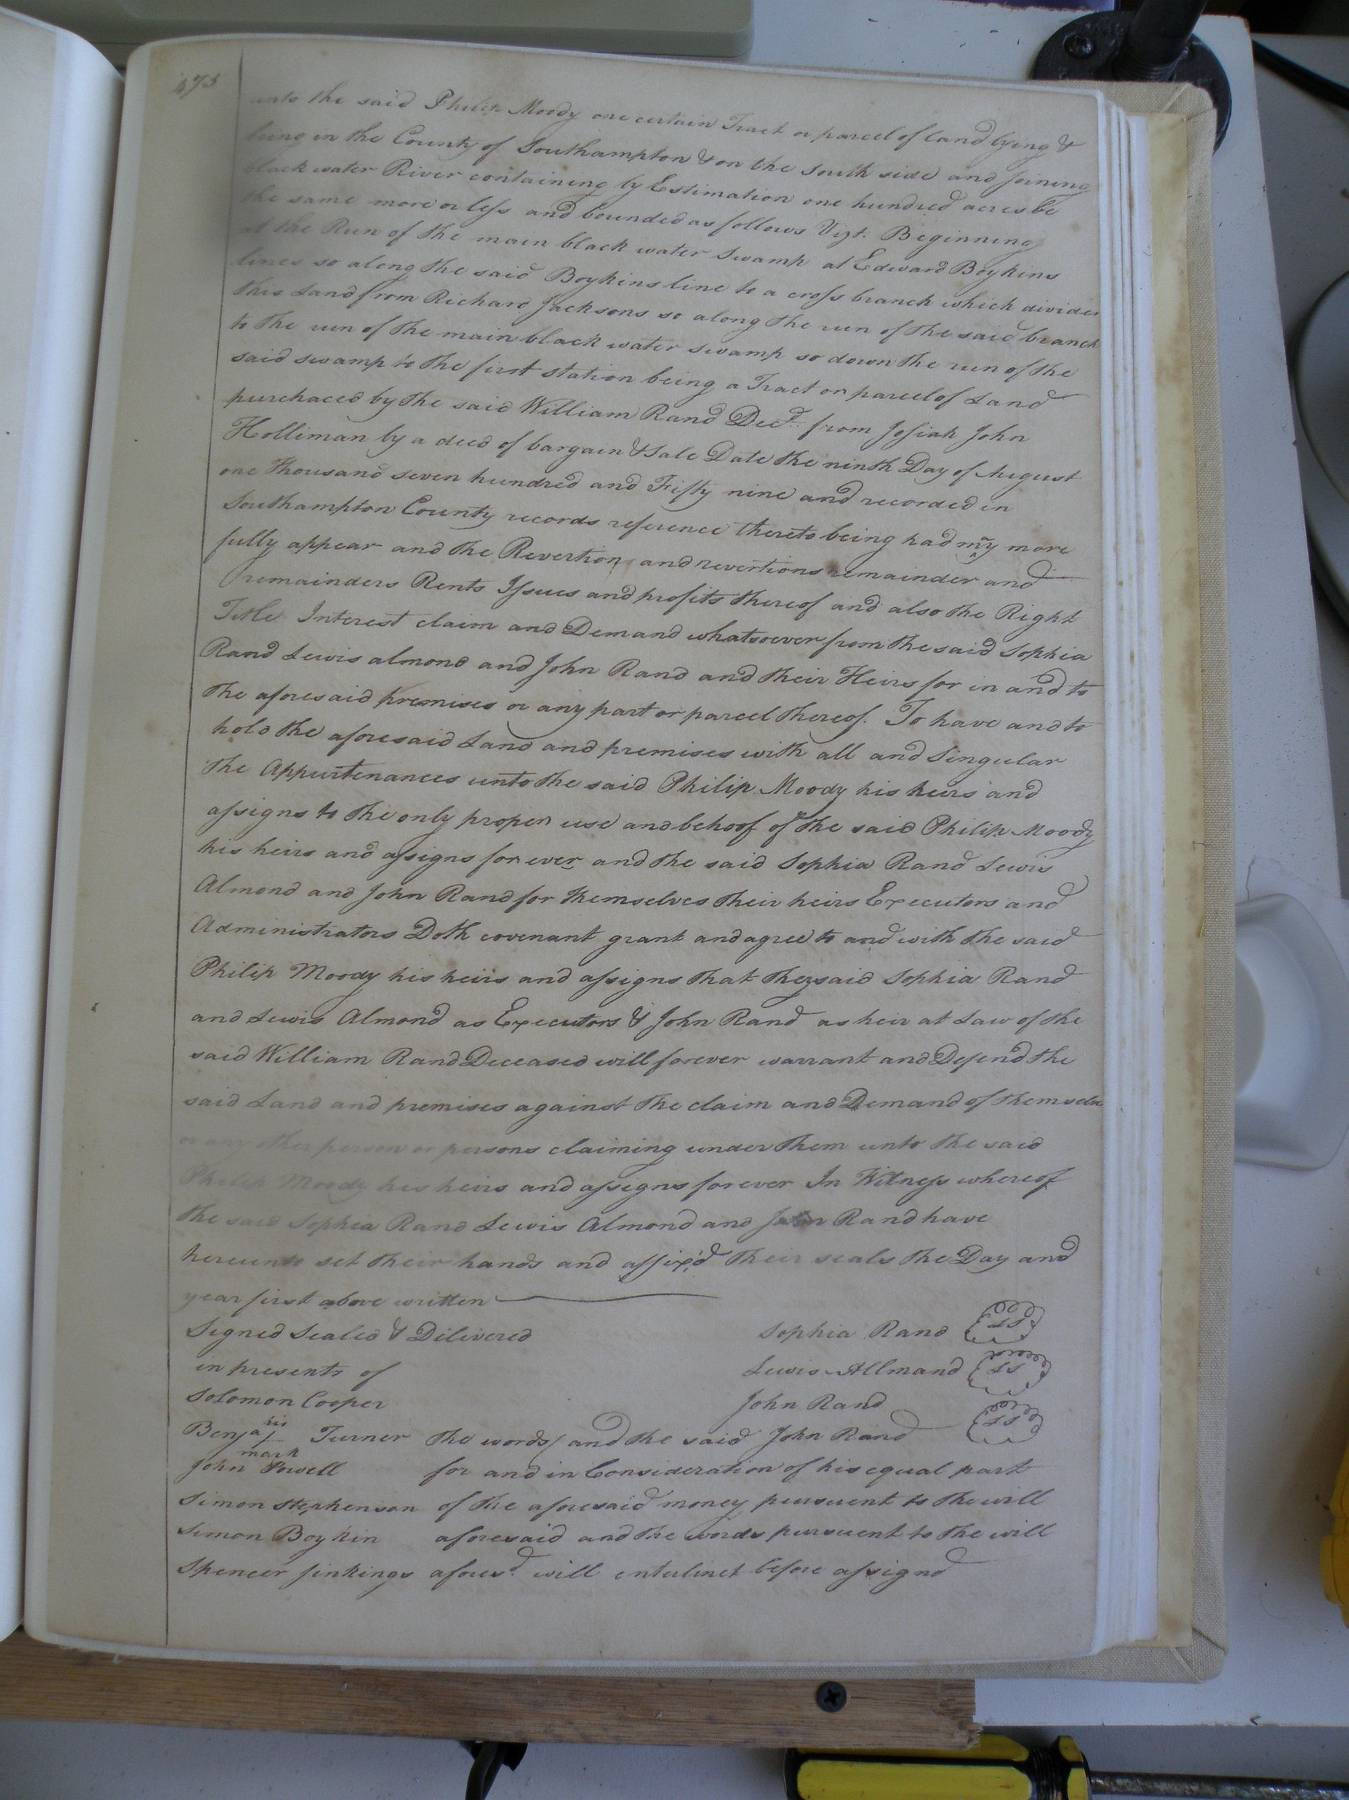 473
unto the said Philip Moody one certain Tract or parcel of land lying &
being in the County of Southampton & on the South side and joining
black water River containing by Estimation one hundred acres be
the same more or less and bounded as follows Vizt. Beginning
at the Run of the main black water swamp at Edward Boykins
lines so along the said Boykins line to a cross branch which divides
this Land from Richard Jacksons so along the run of the said branch
to the run of the main black water swamp so down the run of the
said swamp to the first station being a Tract or parcel of Land
purchaced by the said William Rand Decd. from Josiah John
Holliman by a deed of bargain & Sale Date the ninth Day of August
one Thousand seven hundred and Fifty nine and recorded in
Southampton County records reference thereto being had may more
fully appear and the Revertion and revertions remainder and
remainders Rents Issues and profits thereof and also the Right
Title Interest claim and Demand whatsoever from the said Sophia
Rand Lewis almond and John Rand and their Heirs for in and to
the aforesaid premises or any part or parcel thereof. To have and to
hold the aforesaid Land and premises with all and Singular
the Appurtenances unto the said Philip Moody his heirs and
assigns to the only proper use and behoof of the said Philip Moody
his heirs and assigns for ever and the said Sophia Rand Lewis
Almond and John Rand for themselves their heirs Executors and
Administrators Doth covenant grant and agree to and with the said
Philip Moody his heirs and assigns that they said Sophia Rand
and Lewis Almond as Executors & John Rand as heir at Law of the
said William Rand Deceased will forever warrant and Defend the
said Land and premises against the claim and Demand of themselves
or any other person or persons claiming under them unto the said
Philip Moody his heirs and assigns forever In Witness whereof
the said Sophia Rand Lewis Almond and John Rand have
hereunto set their hands and affix'd their seals the Day and
year first above written
Signed Sealed & Delivered Sophia Rand LS
in presents of Lewis Allmand LS
Solomon Cooper John Rand LS
Benja his Turner the words/ and the said John Rand
mark
John Powell for and in Consideration of his equal part
Simon Stephenson of the aforesaid money pursuent to the will
Simon Boykin aforesaid and the words pursuent to the will
Spencer Jinkings afores.d will enterlinet before assignd